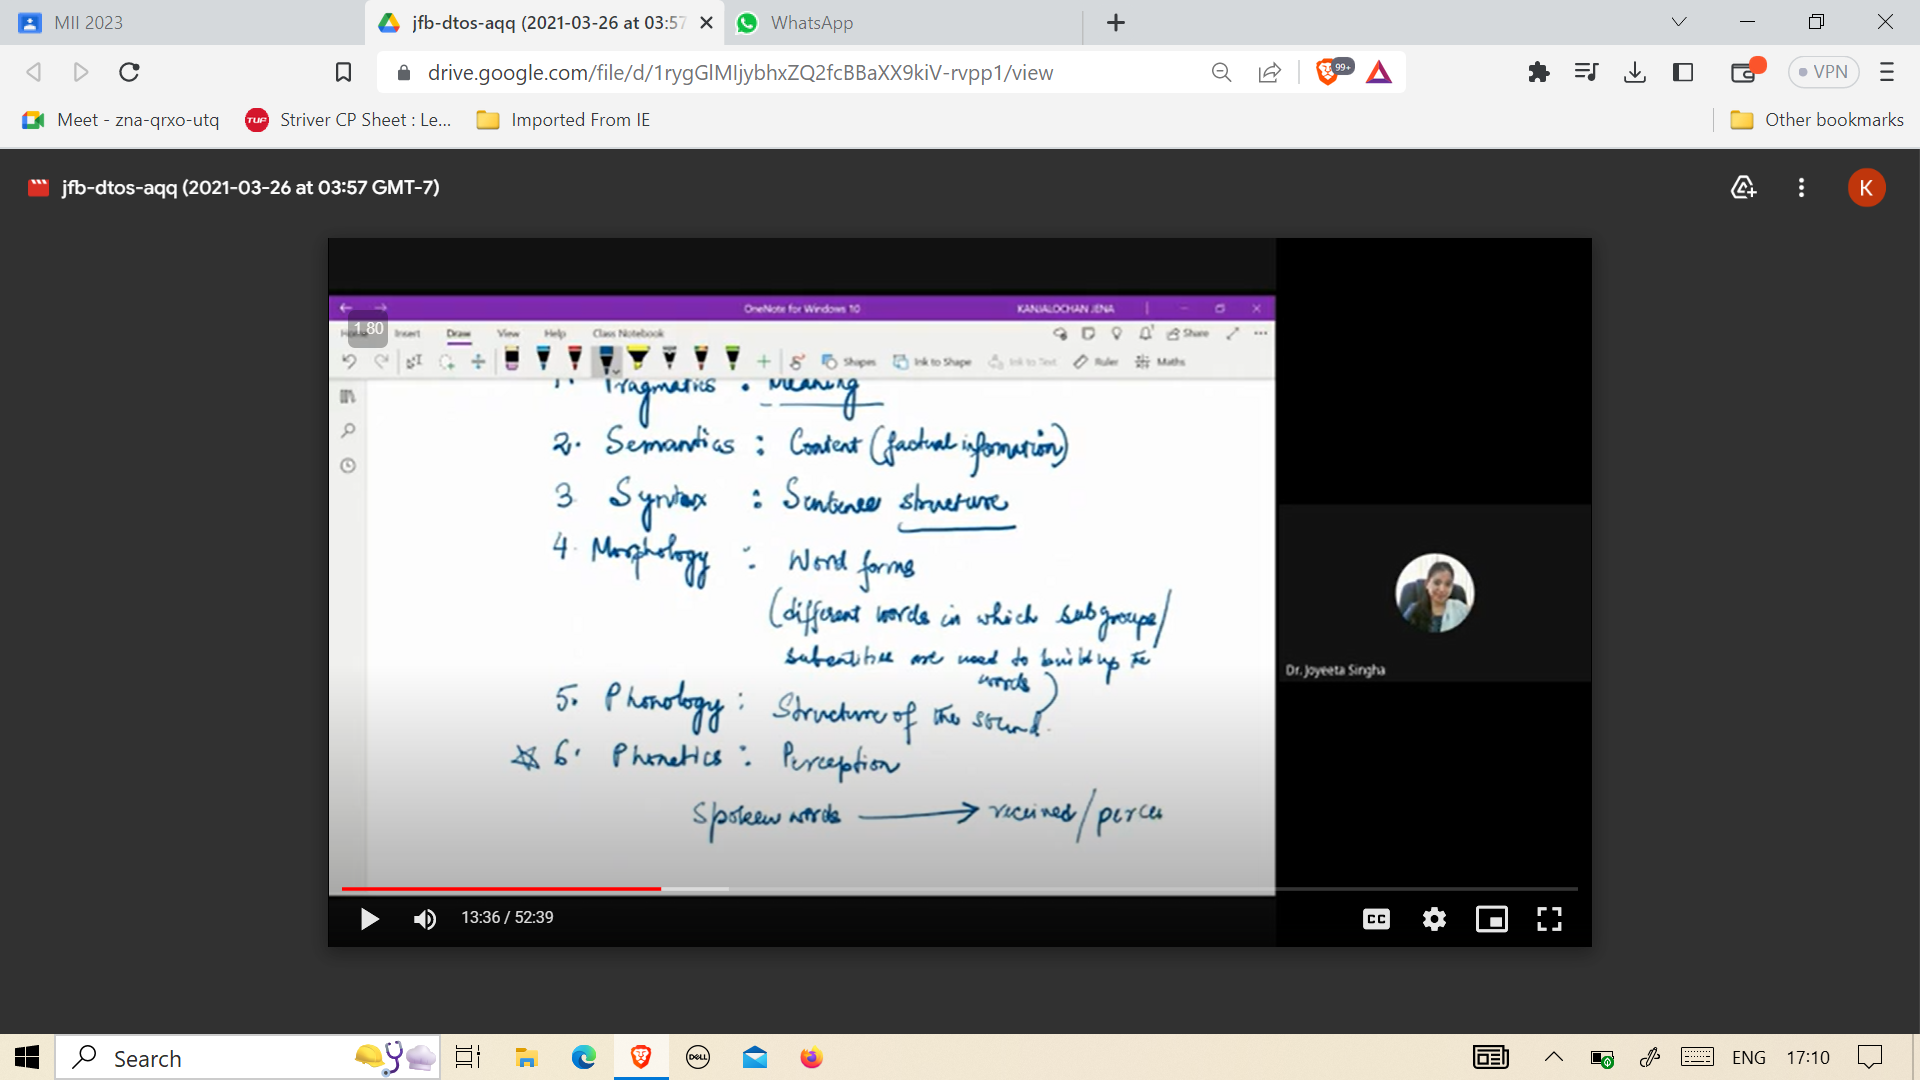 MII 2023
jfb-dtos-aqq (2021-03-26 at 03:57
WhatsApp
drive.google.com/file/d/1rygGlMIjybhxZQ2fcBBaXX9kiV-rvpp1/view
99+
VPN
Meet - zna-qrxo-utq
TUF
Striver CP Sheet : Le...
Imported From IE
Other bookmarks
jfb-dtos-aqq (2021-03-26 at 03:57 GMT-7)
K
OneNote for Windows 10
KANJALOCHAN JENA
1.80
Insert
Draw
View
Help
Class Notebook
Share
Shapes
Ink to Shape
Ink to Text
Ruler
Maths
1. Pragmatics : Meaning
2. Semantics : Content (factual information)
3 Syntax : Sentence structure
4. Morphology : Word forms
(different words in which subgroups/
subentities are used to build up the
words)
5. Phonology : Structure of the sound.
6. Phonetics : Perception
Spoken words → received/perce
Dr. Joyeeta Singha
13:36 / 52:39
CC
Search
DELL
ENG
17:10